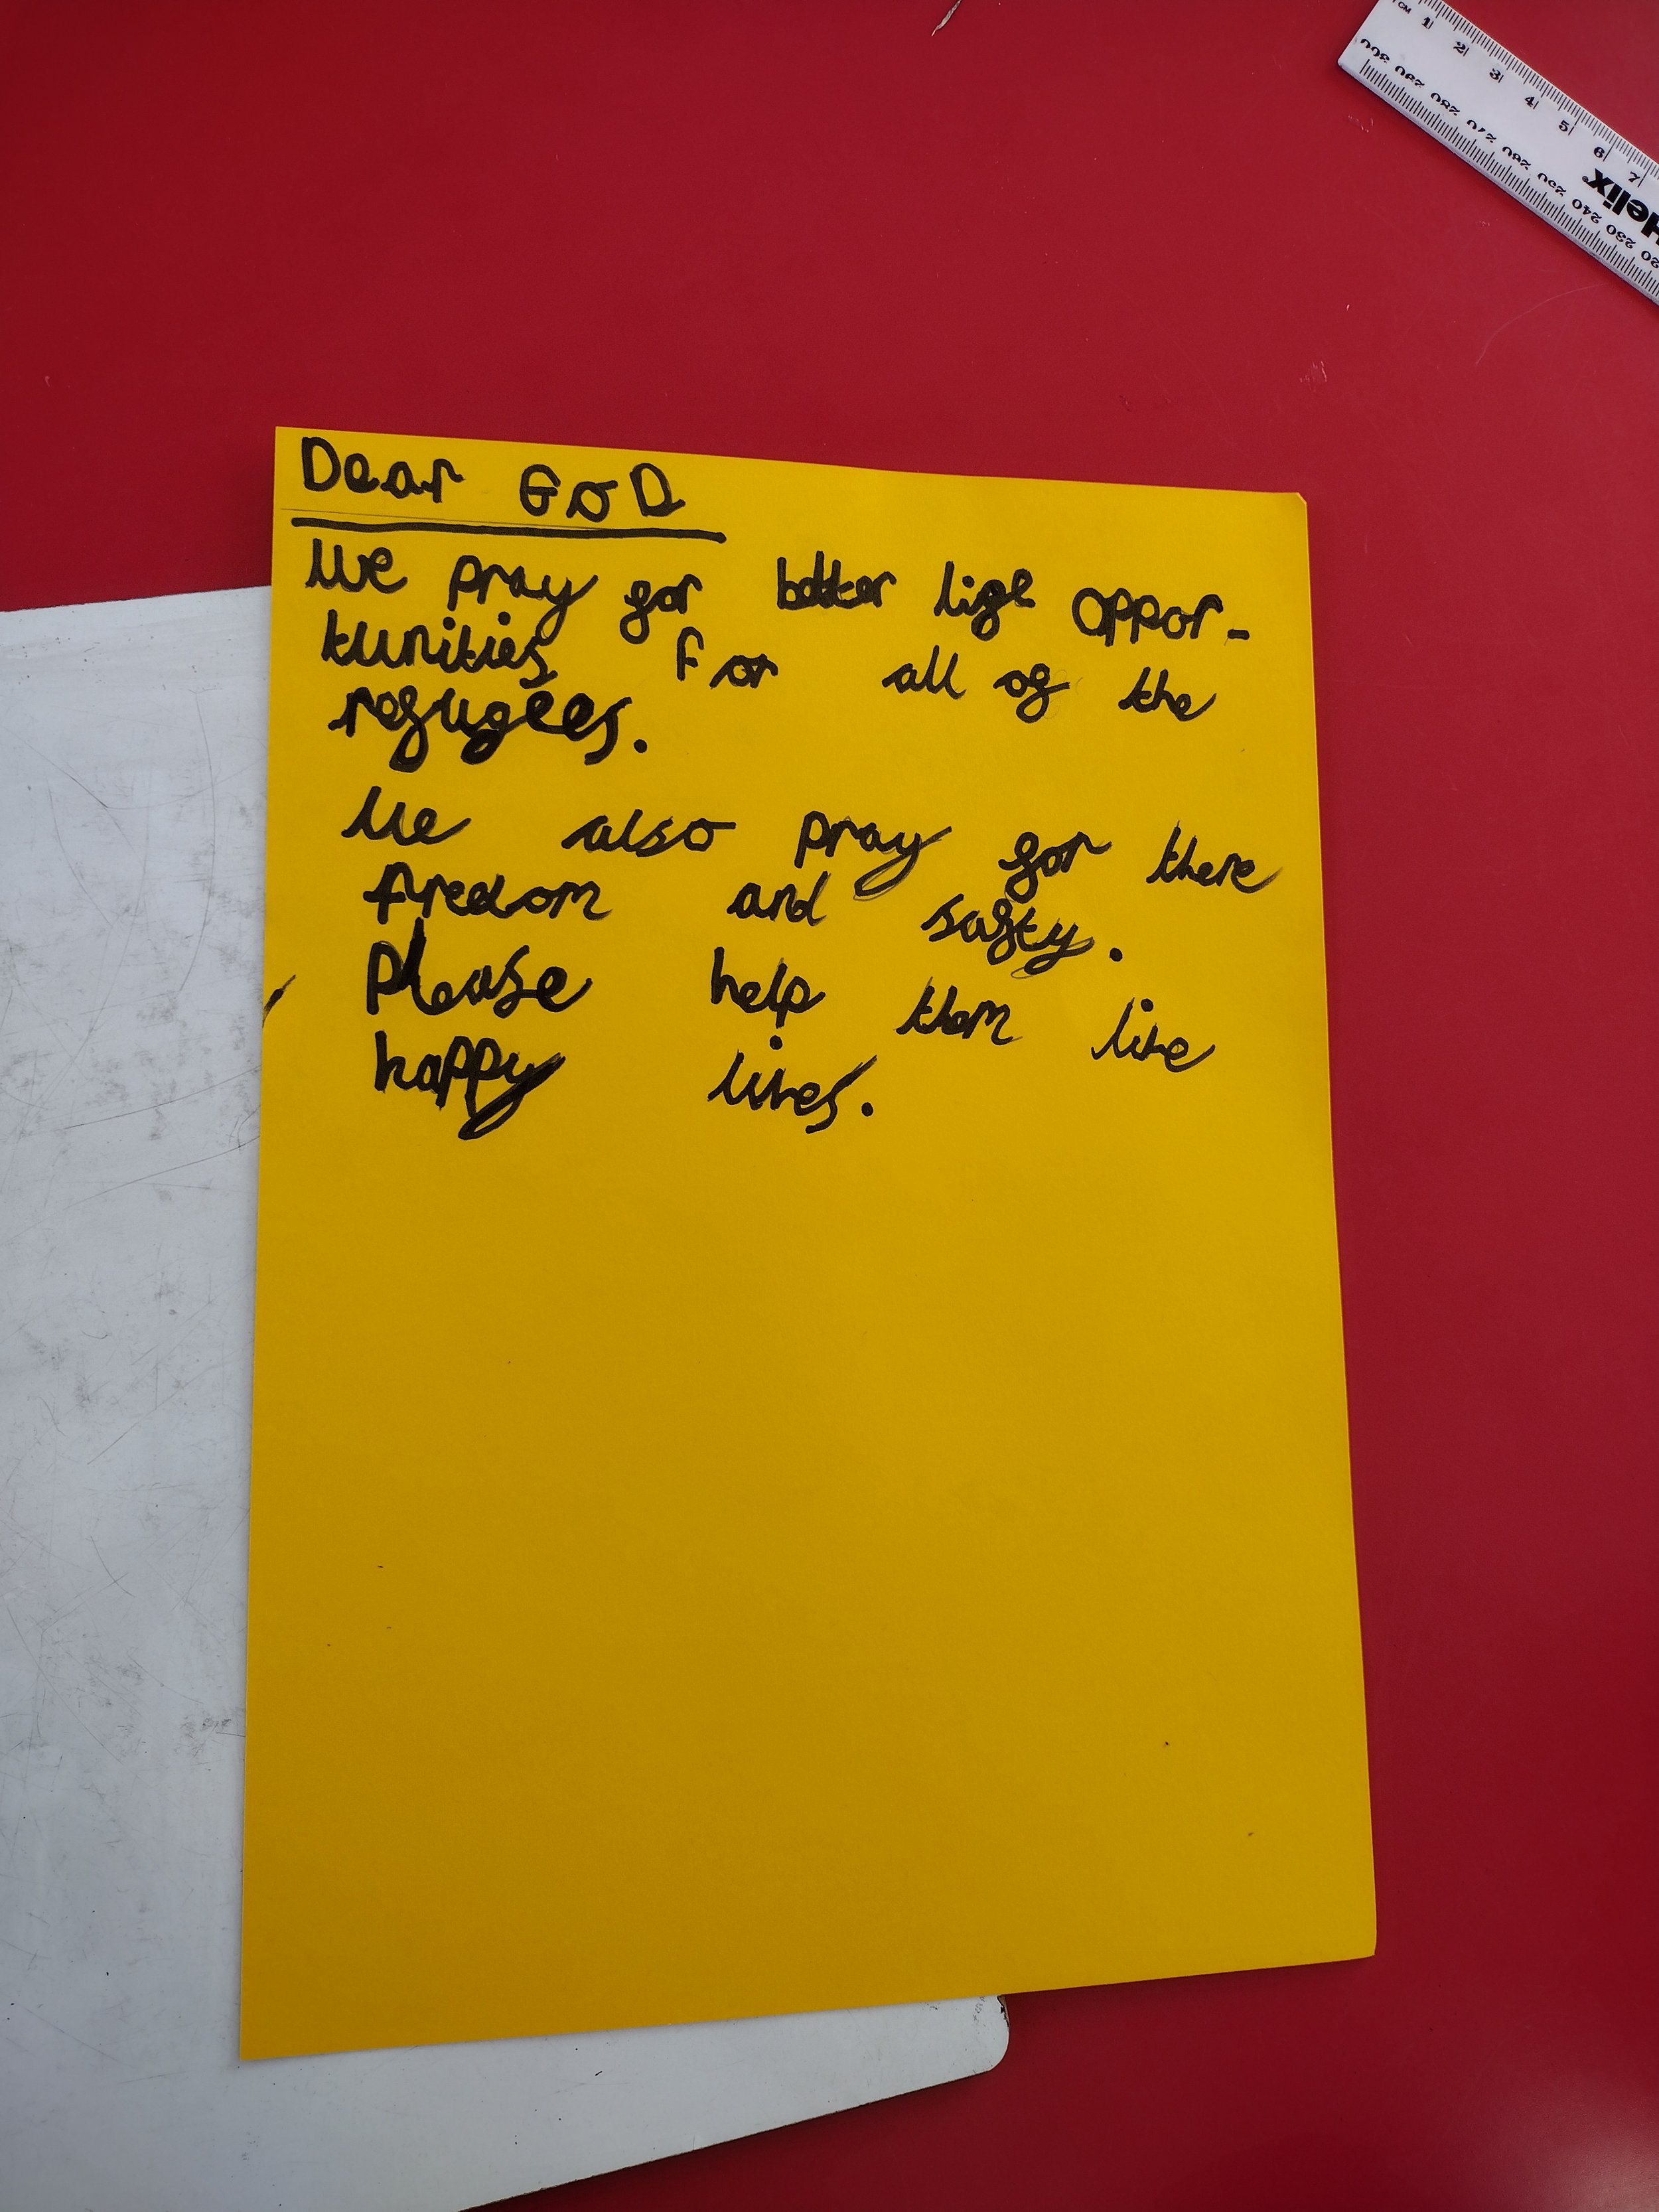 Dear GoD
We pray for better life oppor-
tunities for all of the
refugees.
We also pray for there
fredom and safty.
Please help them live
happy lives.
CM 1 2 3 4 5 6 7
300 290 280 270 260 250 240 230 20
Helix